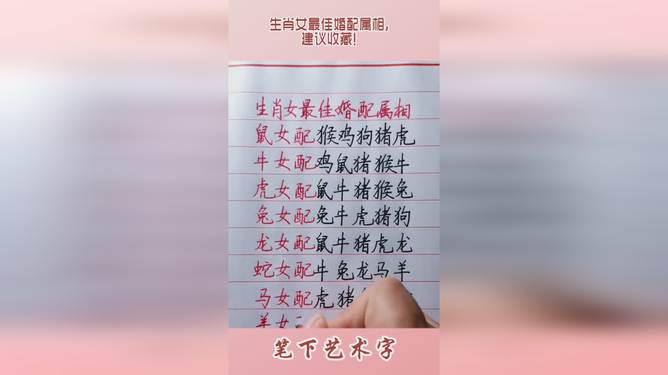 生肖女最佳婚配属相,
建议收藏!
生肖女最佳婚配属相
鼠女配猴鸡狗猪虎
牛女配鸡鼠猪猴牛
虎女配鼠牛猪猴兔
兔女配兔牛虎猪狗
龙女配鼠牛猪虎龙
蛇女配牛兔龙马羊
马女配虎猪
羊女
笔下艺术字